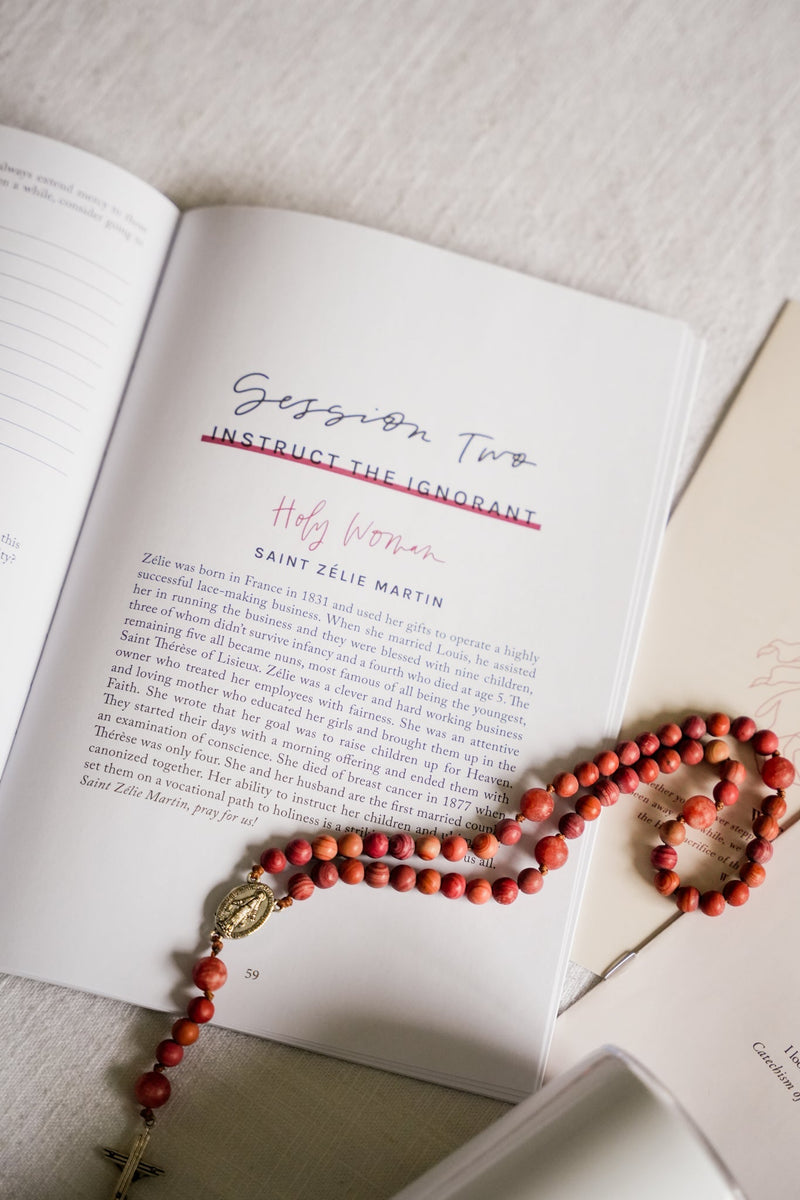 always extend mercy to those
en a while, consider going to
this
ty?
Session Two
INSTRUCT THE IGNORANT
Holy Woman
SAINT ZÉLIE MARTIN
Zélie was born in France in 1831 and used her gifts to operate a highly
successful lace-making business. When she married Louis, he assisted
her in running the business and they were blessed with nine children,
three of whom didn't survive infancy and a fourth who died at age 5. The
remaining five all became nuns, most famous of all being the youngest,
Saint Thérèse of Lisieux. Zélie was a clever and hard working business
owner who treated her employees with fairness. She was an attentive
and loving mother who educated her girls and brought them up in the
Faith. She wrote that her goal was to raise children up for Heaven.
They started their days with a morning offering and ended them with
an examination of conscience. She died of breast cancer in 1877 when
Thérèse was only four. She and her husband are the first married coupl
canonized together. Her ability to instruct her children and
set them on a vocational path to holiness is a
us all.
Saint Zélie Martin, pray for us!
59
ether you
never step
been away
while, we
the
crifice of th
I loo
Catechism of